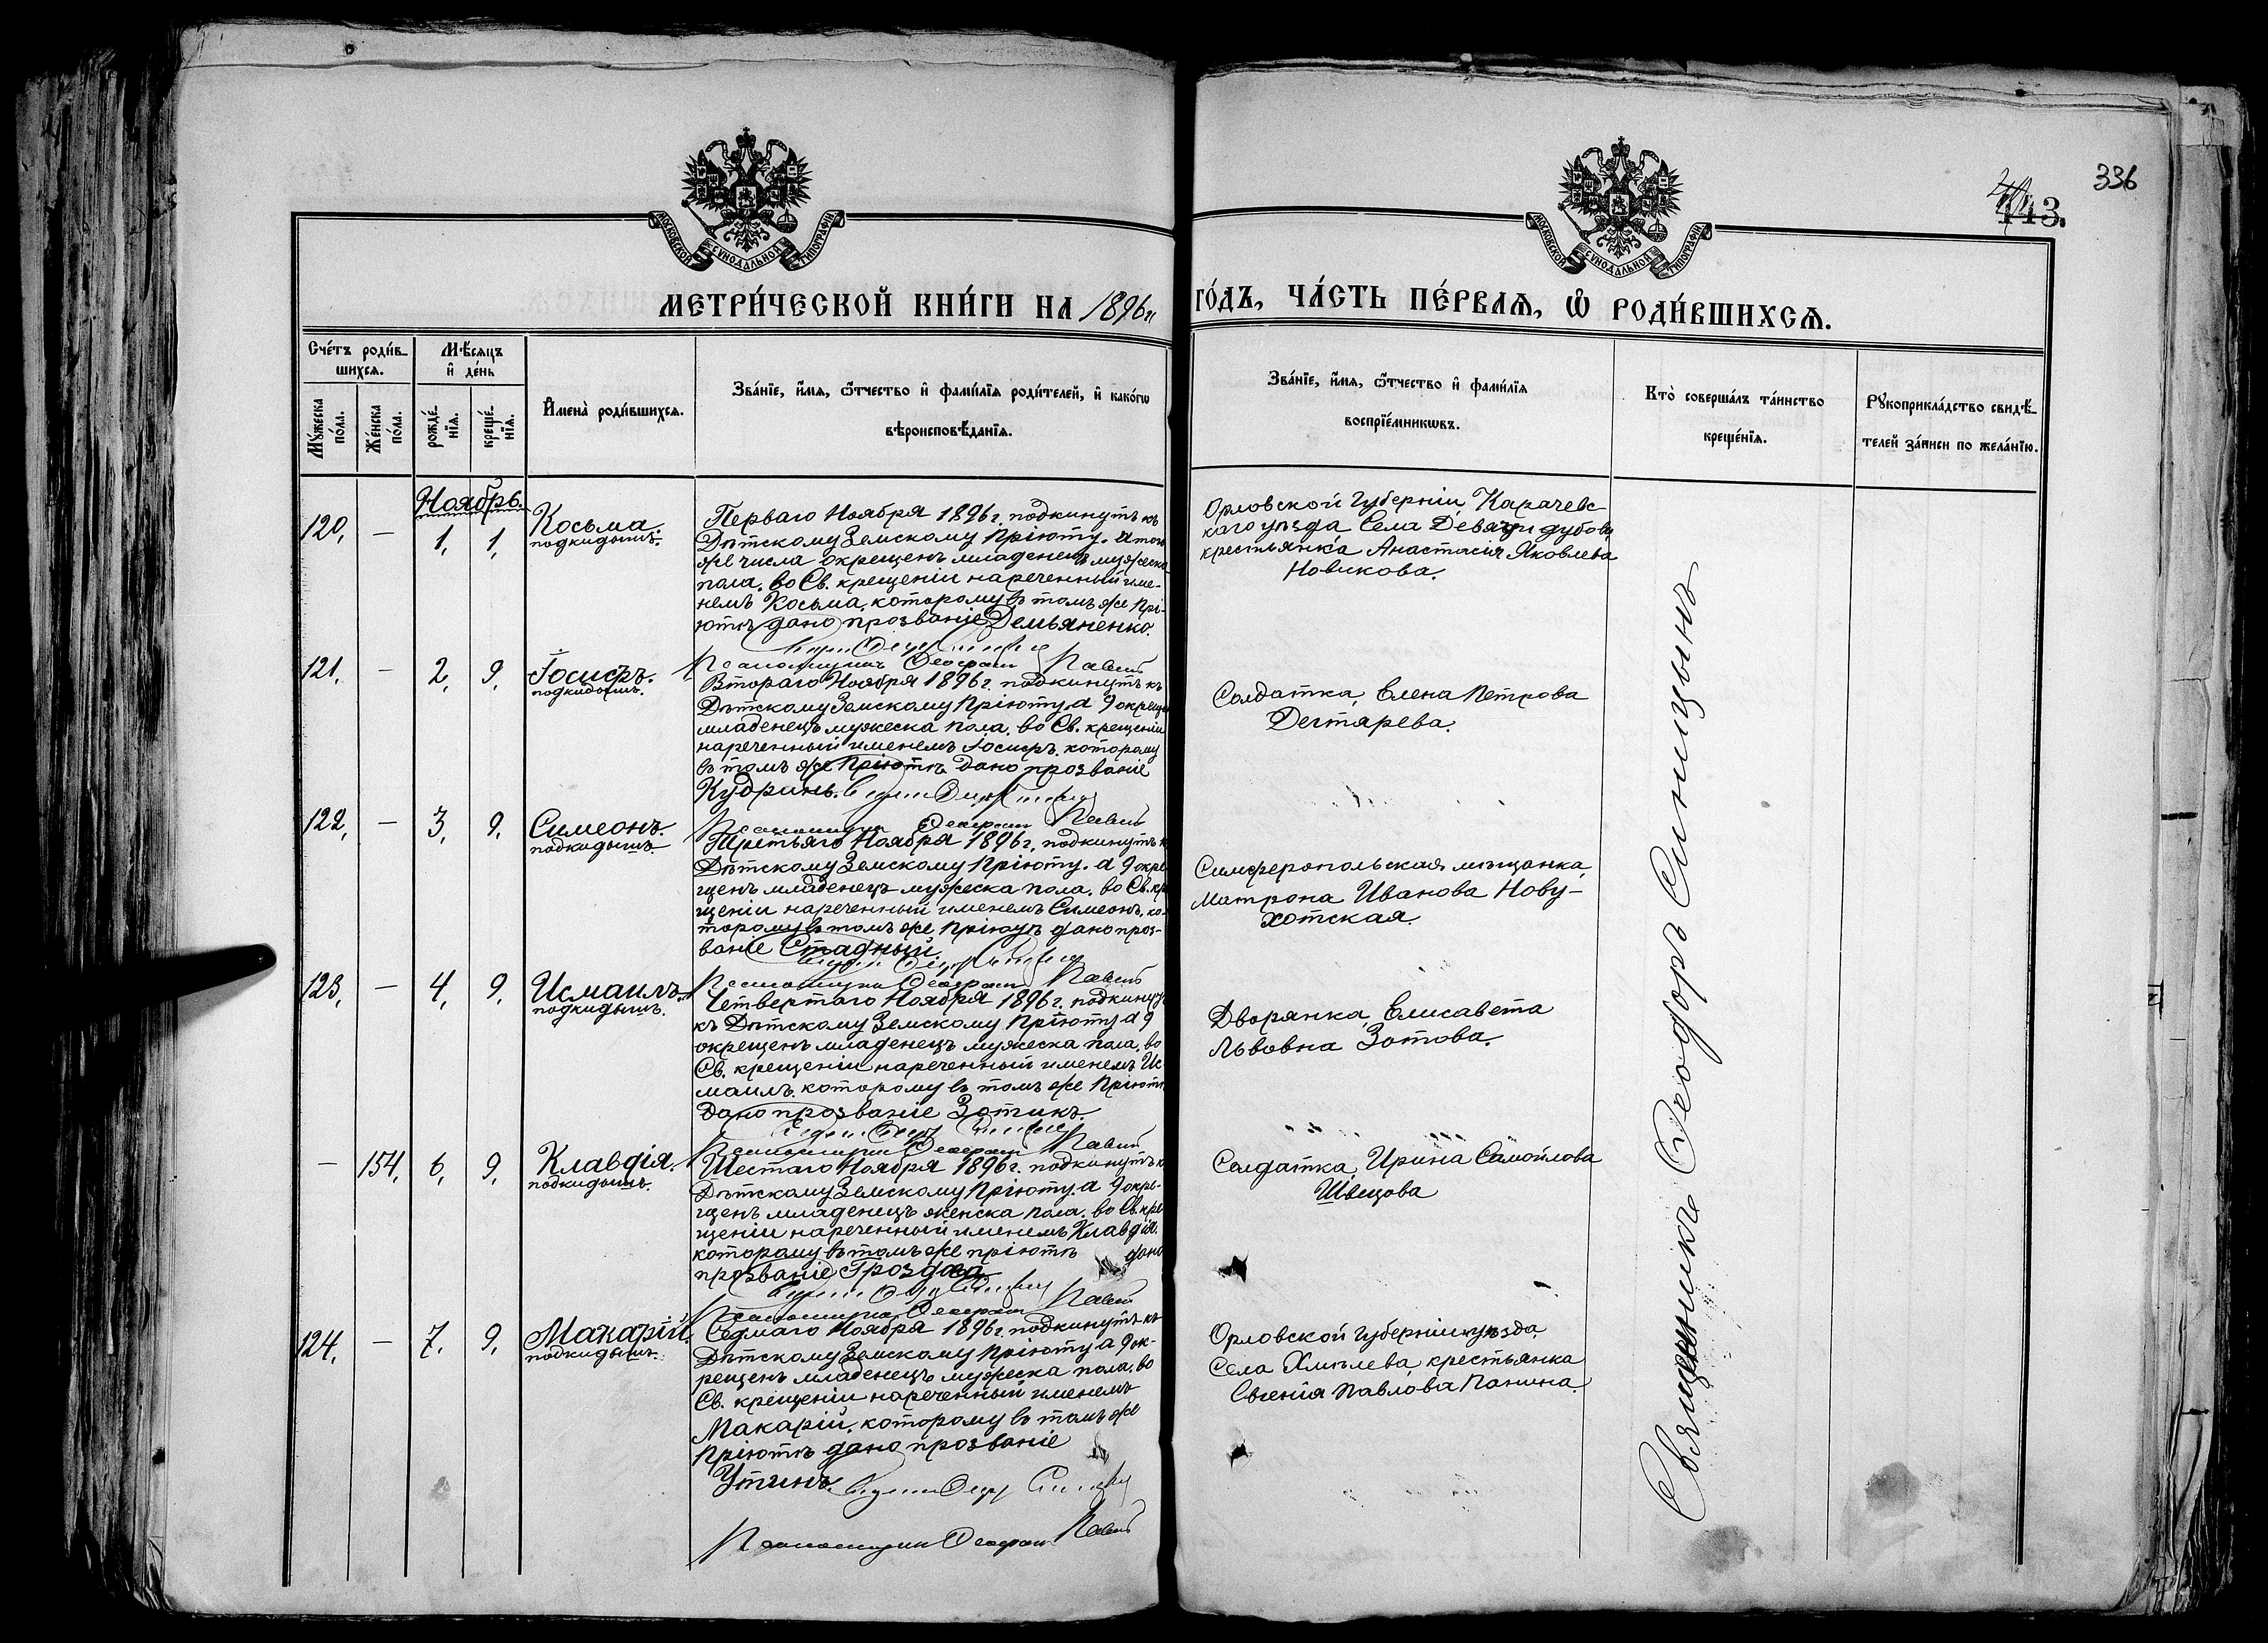 336
143.
МОСКОВСКОЙ СѴНОДАЛЬНОЙ ТИПОГРАФІИ
МОСКОВСКОЙ СѴНОДАЛЬНОЙ ТИПОГРАФІИ
МЕТРИ́ЧЕСКОЙ КНИ́ГИ НА 1896 г. ГО́ДЪ, ЧА́СТЬ ПЕ́РВАЯ, Ѡ РОДИ́ВШИХСЯ.
Сче́тъ роди́в-
шихся.
Мѣ́сяцъ
и҆ де́нь
Мꙋ́жеска по́ла.
Же́нска по́ла.
рожде́нїя.
креще́нїя.
И҆мена̀ роди́вшихся.
Зва́нїе, и҆́мя, ѻ҆́тчество и҆ фами́лїя роди́телей, и҆ како́гѡ
вѣроисповѣ́данїя.
Зва́нїе, и҆́мя, ѻ҆́тчество и҆ фами́лїя
воспрїе́мникѡвъ.
Кто̀ соверша́лъ та́инство
креще́нїя.
Рꙋкоприкла́дство свидѣ́-
телей за́писи по жела́нїю.
Ноябрь.
120, — 1, 1,
Косьма.
подкидышъ.
Перваго Ноября 1896 г. подкинутъ къ
Дѣтскому Земскому Пріюту. а того
же числа окрещенъ младенецъ мужеска
пола. во Св. крещеніи нареченный име-
немъ Косьма. которому въ томъ же Прі-
ютѣ дано прозваніе Демьяненко.
Псаломщикъ
Орловской Губерніи, Карачевс
каго уѣзда, Села Девяти дубовъ
крестьянка Анастасія Яковлева
Новикова.
121, — 2, 9,
Іосифъ.
подкидышъ.
Втораго Ноября 1896 г. подкинутъ къ
Дѣтскому Земскому Пріюту. а 9 окрещен
младенецъ мужеска пола. во Св. крещеніи
нареченный именемъ Іосифъ. которому
въ томъ же Пріютѣ дано прозваніе
Кудринъ.
Псаломщикъ
Солдатка, Елена Петрова
Дегтярева.
122, — 3, 9,
Симеонъ.
подкидышъ.
Третьяго Ноября 1896 г. подкинутъ к
Дѣтскому Земскому Пріюту. а 9 окре
щенъ младенецъ мужеска пола. во Св. кр
щеніи нареченный именемъ Симеонъ. ко-
торому въ томъ же Пріютѣ дано проз-
ваніе Стадный.
Псаломщикъ
Симферопольская мѣщанка,
Матрона Иванова Нову-
хотская.
123, — 4, 9,
Исмаилъ.
подкидышъ.
Четвертаго Ноября 1896 г. подкинут
къ Дѣтскому Земскому Пріюту а 9
окрещенъ младенецъ мужеска пола. во
Св. крещеніи нареченный именемъ Ис
маилъ. которому въ томъ же Пріютѣ
дано прозваніе Зотикъ.
Псаломщикъ
Дворянка, Елисавета
Львовна Зотова.
— 154, 6, 9,
Клавдія.
подкидышъ.
Шестаго Ноября 1896 г. подкинутъ к
Дѣтскому Земскому Пріюту. а 9 окре-
щенъ младенецъ женска пола. во Св. кре
щеніи нареченный именемъ Клавдія.
которому въ томъ же пріютѣ дано
прозваніе Гроздова
Псаломщикъ
Солдатка, Ирина Самойлова
Швецова
124, — 7, 9,
Макарій.
подкидышъ.
Седмаго Ноября 1896 г. подкинутъ къ
Дѣтскому Земскому Пріюту а 9 ок-
рещенъ младенецъ мужеска пола. во
Св. крещеніи нареченный именемъ
Макарій. которому въ томъ же
Пріютѣ дано прозваніе
Утинъ.
Псаломщикъ
Орловской губерніи уѣзда,
Села Хмѣлева, крестьянка
Евгенія Павлова Панина.
Священникъ Ѳеодоръ Синицынъ